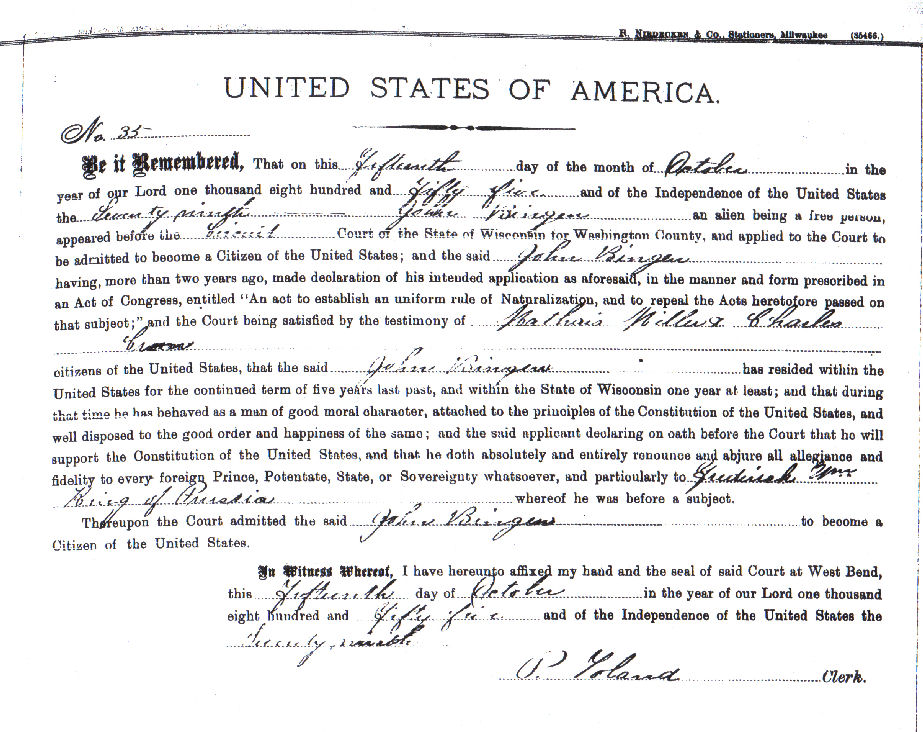 R. NIEDECKEN & Co., Stationers, Milwaukee (35466.)
UNITED STATES OF AMERICA.
No. 35
Be it Remembered, That on this Fifteenth day of the month of October in the
year of our Lord one thousand eight hundred and Fifty five and of the Independence of the United States
the Seventy ninth John Bingen an alien being a free person,
appeared before the Circuit Court of the State of Wisconsin for Washington County, and applied to the Court to
be admitted to become a Citizen of the United States; and the said John Bingen
having, more than two years ago, made declaration of his intended application as aforesaid, in the manner and form prescribed in
an Act of Congress, entitled "An act to establish an uniform rule of Naturalization, and to repeal the Acts heretofore passed on
that subject;" and the Court being satisfied by the testimony of Mathais Miller & Charles
citizens of the United States, that the said John Bingen has resided within the
United States for the continued term of five years last past, and within the State of Wisconsin one year at least; and that during
that time he has behaved as a man of good moral character, attached to the principles of the Constitution of the United States, and
well disposed to the good order and happiness of the same; and the said applicant declaring on oath before the Court that he will
support the Constitution of the United States, and that he doth absolutely and entirely renounce and abjure all allegiance and
fidelity to every foreign Prince, Potentate, State, or Sovereignty whatsoever, and particularly to Frederick Wm
King of Prussia whereof he was before a subject.
Thereupon the Court admitted the said John Bingen to become a
Citizen of the United States.
In Witness Whereof, I have hereunto affixed my hand and the seal of said Court at West Bend,
this Fifteenth day of October in the year of our Lord one thousand
eight hundred and Fifty five and of the Independence of the United States the
Seventy ninth
P. Toland Clerk.